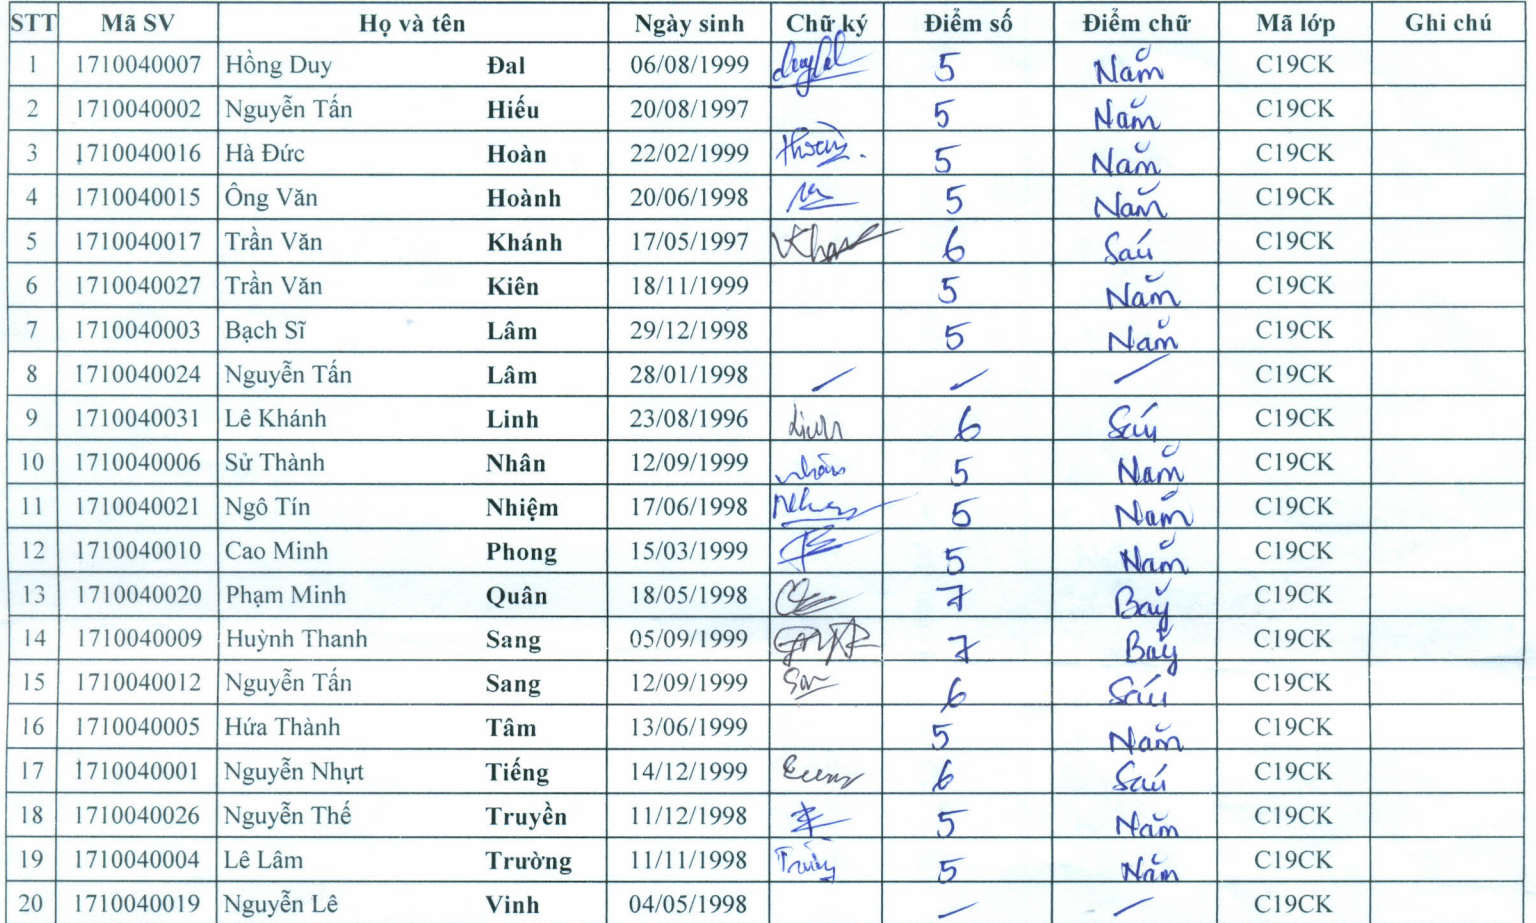 STT Mã SV Họ và tên Ngày sinh Chữ ký Điểm số Điểm chữ Mã lớp Ghi chú
1 1710040007 Hồng Duy Đal 06/08/1999 duyđal 5 Năm C19CK
2 1710040002 Nguyễn Tấn Hiếu 20/08/1997 5 Năm C19CK
3 1710040016 Hà Đức Hoàn 22/02/1999 5 Năm C19CK
4 1710040015 Ông Văn Hoành 20/06/1998 5 Năm C19CK
5 1710040017 Trần Văn Khánh 17/05/1997 6 Sáu C19CK
6 1710040027 Trần Văn Kiên 18/11/1999 5 Năm C19CK
7 1710040003 Bạch Sĩ Lâm 29/12/1998 5 Năm C19CK
8 1710040024 Nguyễn Tấn Lâm 28/01/1998 C19CK
9 1710040031 Lê Khánh Linh 23/08/1996 Linh 6 Sáu C19CK
10 1710040006 Sử Thành Nhân 12/09/1999 nhân 5 Năm C19CK
11 1710040021 Ngô Tín Nhiệm 17/06/1998 5 Năm C19CK
12 1710040010 Cao Minh Phong 15/03/1999 5 Năm C19CK
13 1710040020 Phạm Minh Quân 18/05/1998 7 Bảy C19CK
14 1710040009 Huỳnh Thanh Sang 05/09/1999 7 Bảy C19CK
15 1710040012 Nguyễn Tấn Sang 12/09/1999 6 Sáu C19CK
16 1710040005 Hứa Thành Tâm 13/06/1999 5 Năm C19CK
17 1710040001 Nguyễn Nhựt Tiếng 14/12/1999 6 Sáu C19CK
18 1710040026 Nguyễn Thế Truyền 11/12/1998 5 Năm C19CK
19 1710040004 Lê Lâm Trường 11/11/1998 5 Năm C19CK
20 1710040019 Nguyễn Lê Vinh 04/05/1998 C19CK